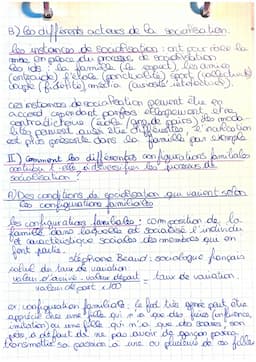 B) Les différents acteurs de la socialisation.
Les instances de socialisation : ont pour rôle la
mise en place du processus de socialisation
les IDS : la famille (le respect), les amis
(entraide), l'école (ponctualité) sport (collectivité)
couple (fidélité), média (curiosité intellectuelle).
Ces instances de socialisation peuvent être en
accord, cependant parfois elles peuvent être
contradictoires (école / groupe de pairs), les moda-
lités peuvent aussi être différentes, l'éducation
est plus présente dans la famille par exemple.
II) Comment les différentes configurations familiales
contribu t-elle à diversifier les processus de
socialisation ?
A) Des conditions de socialisation qui varient selon
les configurations familiales
les configurations familiales : composition de la
famille dans laquelle est socialisé l'individu
et caractéristique sociales des membres qui en
font partie.
Stéphane Beaud : sociologue français
calcul du taux de variation
valeur d'arrivée - valeur départ = taux de variation
valeur départ x100
ex configuration familiale : le fait d'être peut être
une fille qui n'a que des frères (influence,
imitation) ou une fille qui n'a que des sœurs, son
père, à défaut de ne pas avoir de garçon pourra
transmettre sa passion à une ou plusieurs de ses filles